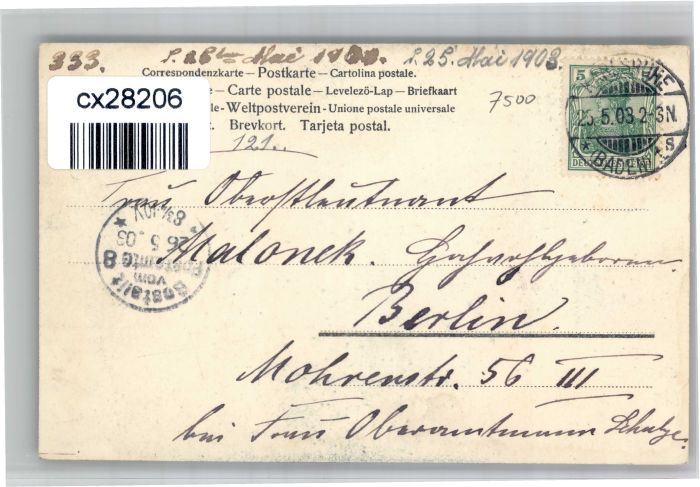 333. 1903. 25. Mai 1903.
Correspondenzkarte – Postkarte – Cartolina postale.
– Carte postale – Levelező-Lap – Briefkaart
-Weltpostverein-Unione postale universale
Brevkort. Tarjeta postal.
cx28206
7500
121..
5
25.5.03.2-3N.
(BADEN)
Frau Oberstleutnant
Malonek. Hochwohlgeboren.
Berlin.
Mohrenstr. 56 III
bei Frau Oberamtmann Schulze.
Bestellt
vom
Postamte 8
26.5.03